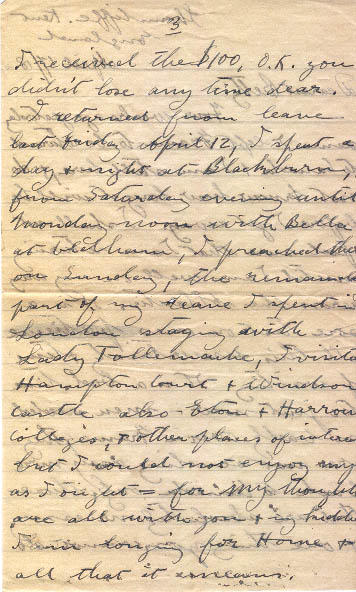 3
I received the $100, O.K. you
didn't lose any time dear.
I returned from leave
last Friday April 12, I spent a
day & night at Blackburn,
from Saturday evening until
Monday noon with Bella
at Oldham, I preached the
on Sunday, the remaind
part of my leave I spent i
London staying with
Lady Tollemache, I visite
Hampton Court & Windsor
Castle also Eton & Harrow
Colleges, & other places of intere
but I could not enjoy my
as I ought = for my though
are all with you &
I'm longing for Home &
all that it means.